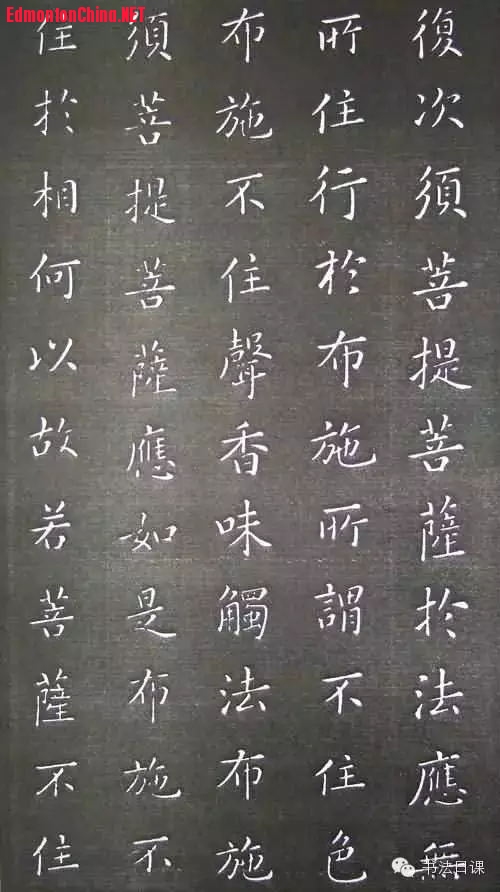 EdmontonChina.NET
復次須菩提菩薩於法應無
所住行於布施所謂不住色
布施不住聲香味觸法布施
須菩提菩薩應如是布施不
住於相何以故若菩薩不住
书法日课